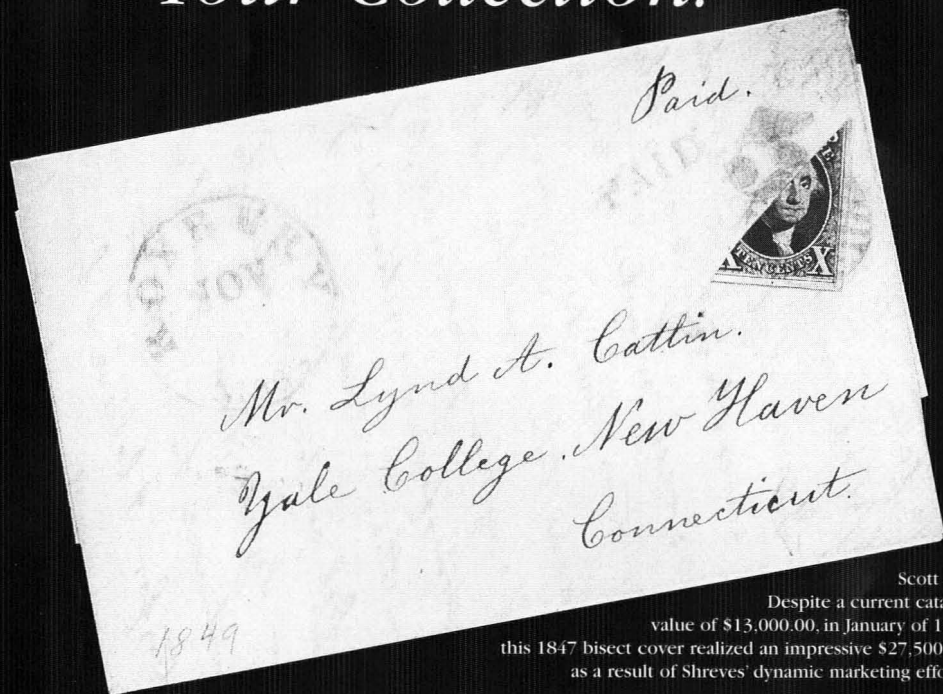 Your Collection.
Paid.
PAID
NOV
X TEN CENTS X
Mr. Lynd A. Catlin.
Yale College, New Haven
Connecticut.
1849
Scott
Despite a current cata
value of $13,000.00, in January of 1
this 1847 bisect cover realized an impressive $27,500
as a result of Shreves' dynamic marketing effo